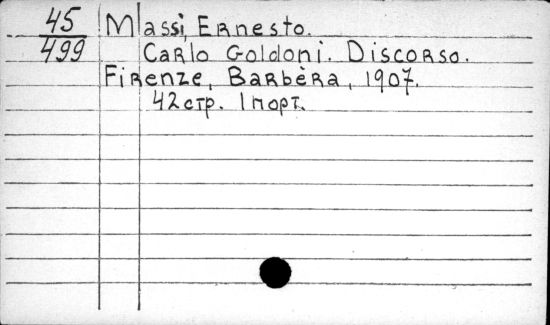 45 Massi, Ernesto.
499 Carlo Goldoni. Discorso.
Firenze, Barbèra, 1907.
42 стр. 1 порт.